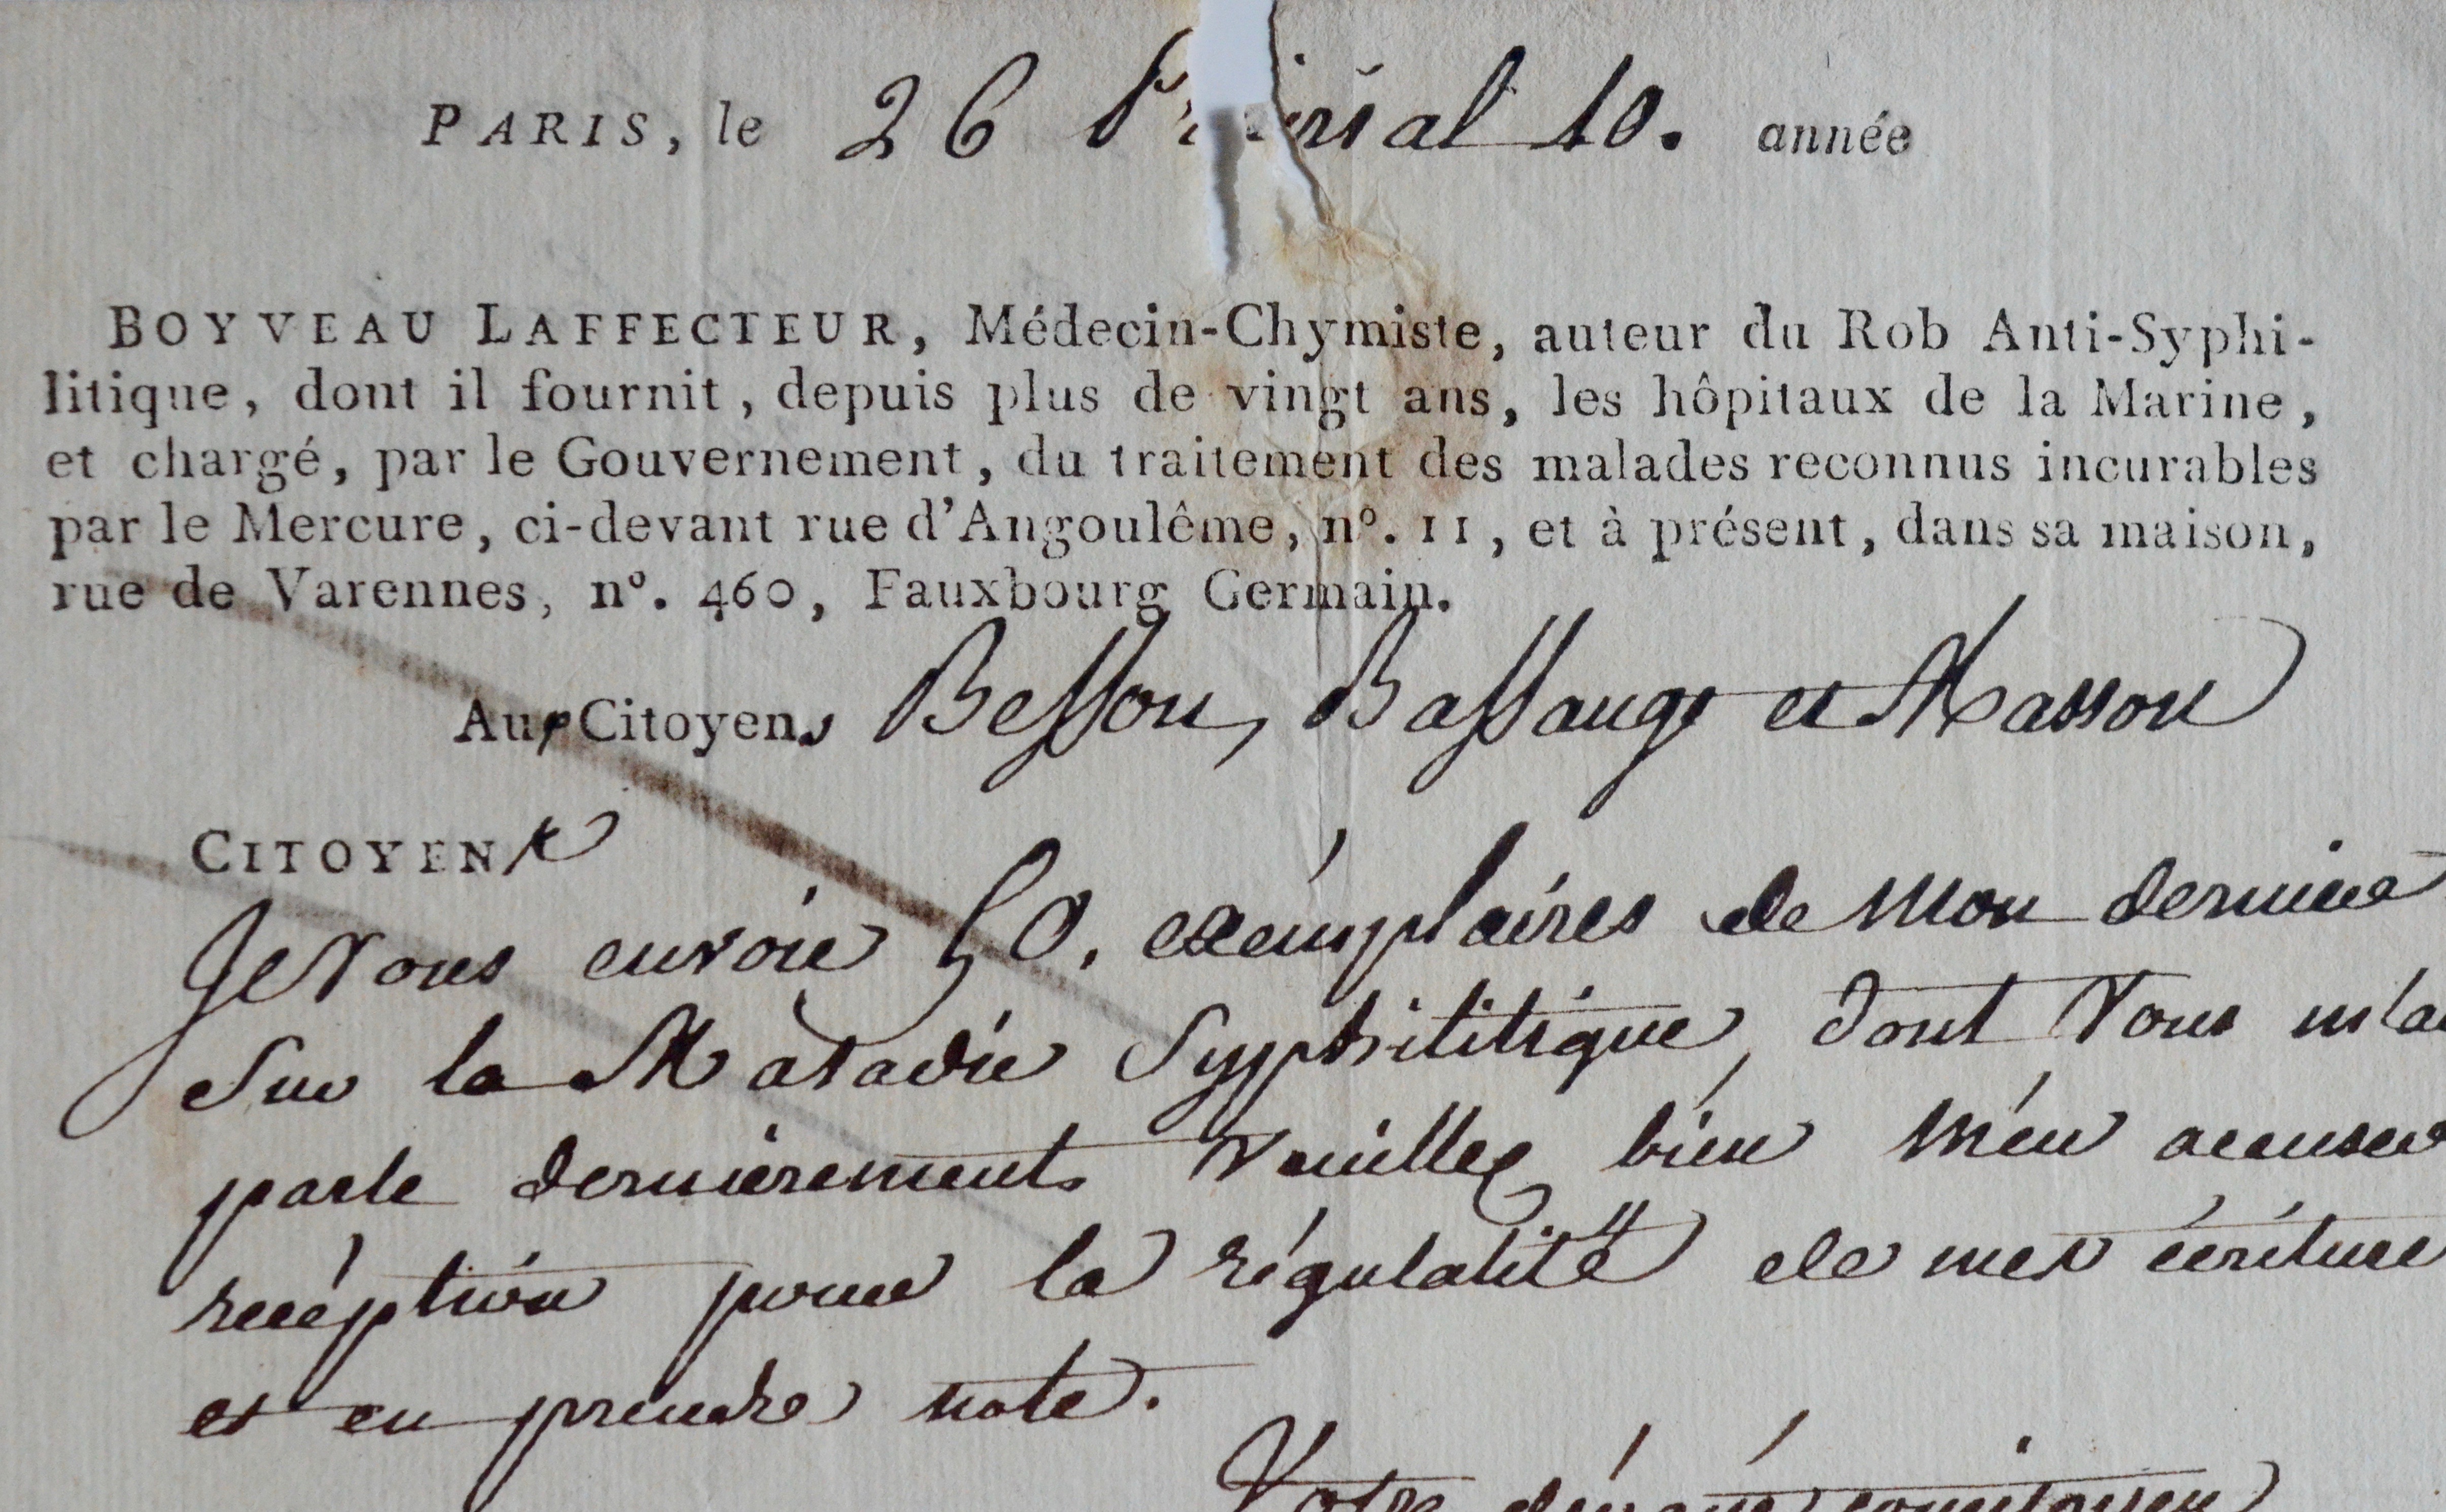 PARIS, le 26 Prairial 10. année
BOYVEAU LAFFECTEUR, Médecin-Chymiste, auteur du Rob Anti-Syphi-
litique, dont il fournit, depuis plus de vingt ans, les hôpitaux de la Marine,
et chargé, par le Gouvernement, du traitement des malades reconnus incurables
par le Mercure, ci-devant rue d'Angoulême, nº. 11, et à présent, dans sa maison,
rue de Varennes, nº. 460, Fauxbourg Germain.
Aux Citoyens Besson, Bassange et Masson
CITOYENS
Je Vous envoie 50. exémplaires de Mon dernier
Sur la Maladie Syphilitique, dont Vous m'a
parle dernièrement. Veuillez bien M'en accuser
recéption pour la régulatité de mes écriture
et en prendre note.
Votre dévoué concitoyen